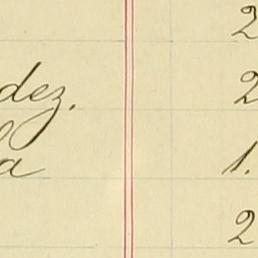 2
dez. 2
la 1.
2